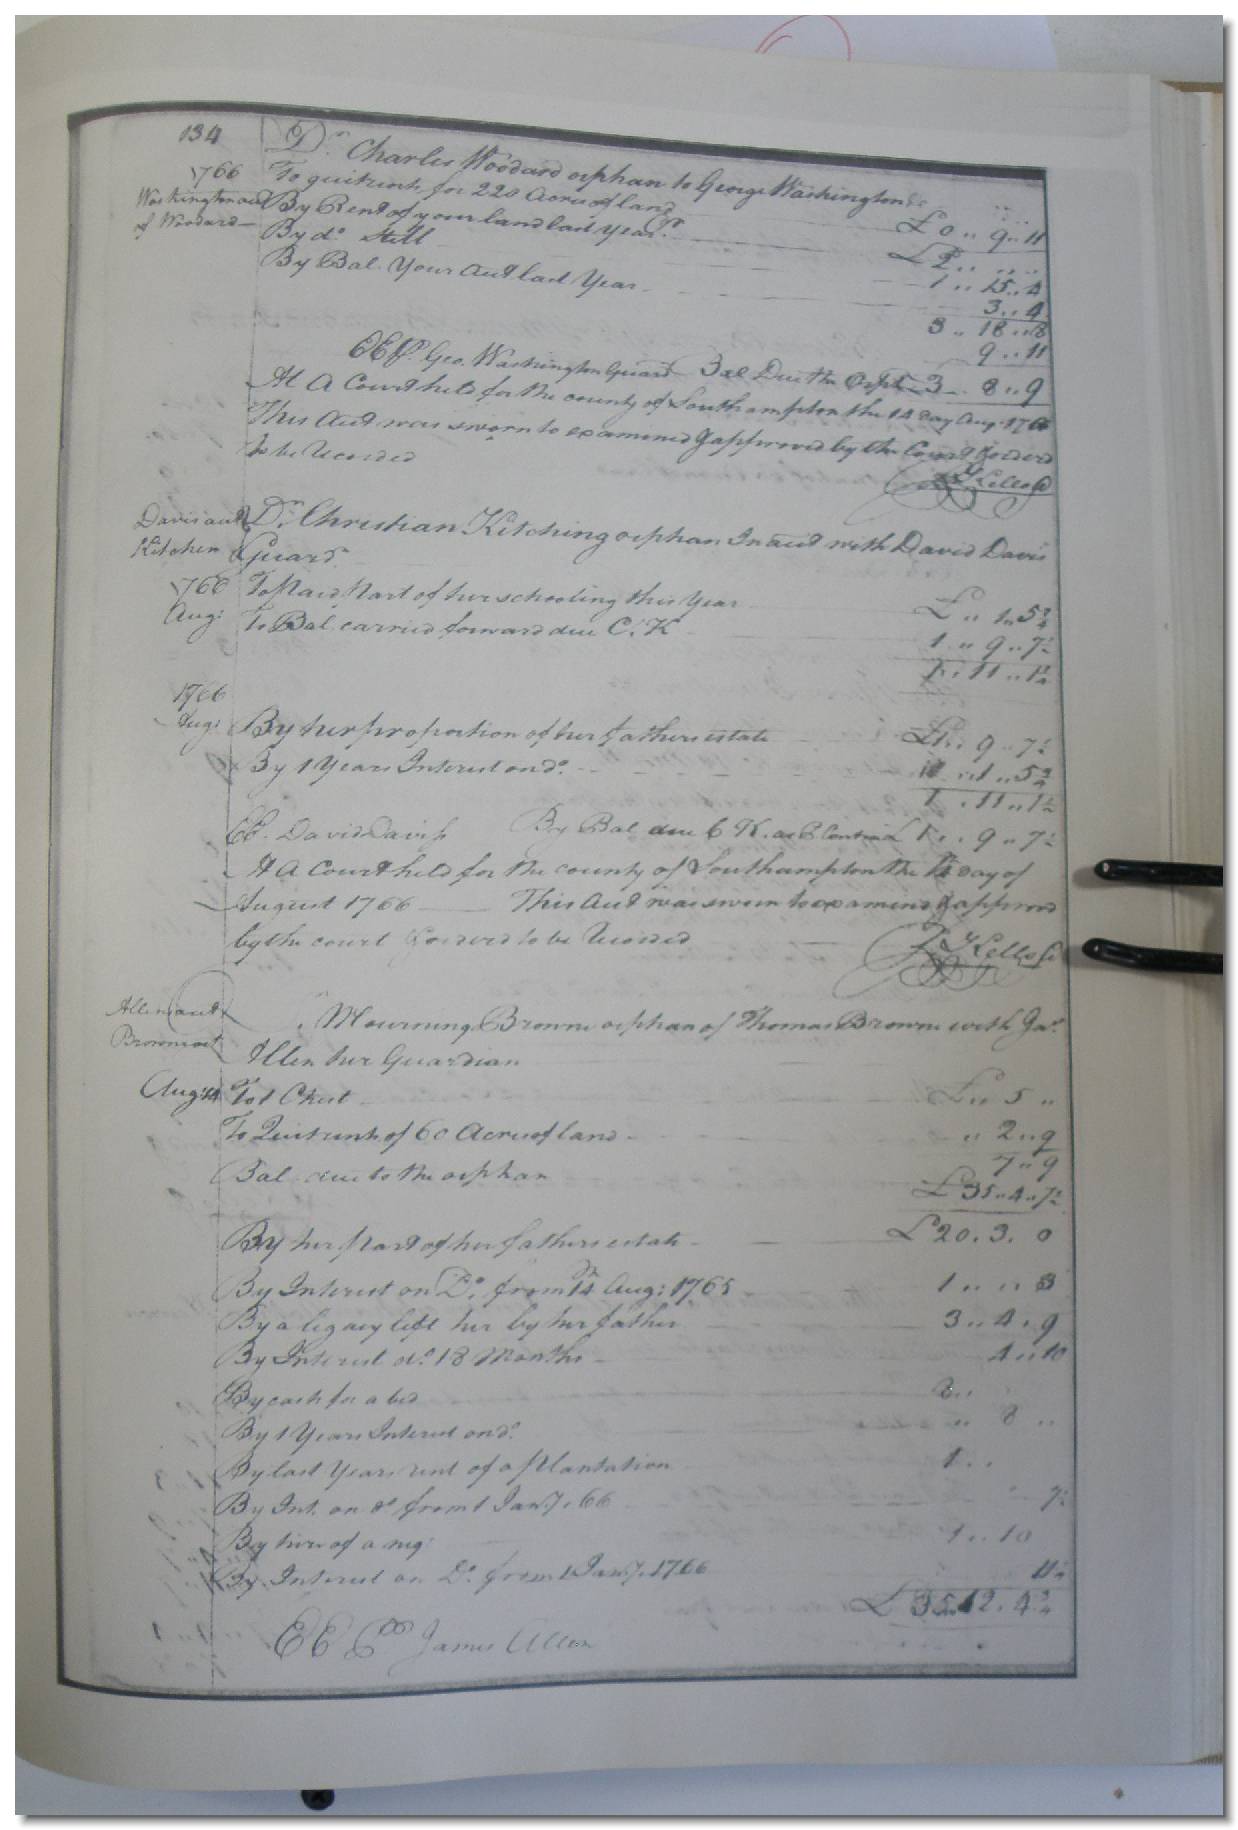 134
Dr. Charles Woodard orphan to George Washington Dr
1766
To quitrents for 220 Acres of land £0 „ 9 „ 11
Washington acct
of Woodard
By Rent of your land last year £2 „ „
By do. Still 1 „ 15 „ 4
By Bal. Your Acct last Year 3 „ 4
3 „ 18 „ 8
9 „ 11
EE Pr. Geo. Washington Guard Bal Due the Orph £3 „ 8 „ 9
At A Court held for the county of Southampton the 14 day Aug. 1766
This Acct was sworn to examined & approved by the Court & ordered
to be Recorded
Davis acct
Kitchen
Dr. Christian Kitching orphan In acct with David Davis
Guard.
1766
Aug:
To Paid Part of her schooling this Year £ „ 1 „ 5 3/4
To Bal. carried forward due C. K 1 „ 9 „ 7 1/2
1 „ 11 „ 1 1/4
1766
Aug:
By her proportion of her fathers estate £1 „ 9 „ 7 1/2
By 1 Years Interest on do. „ 1 „ 5 3/4
1 „ 11 „ 1 1/4
EE. David Davis By Bal due C K. as P Contra £1 „ 9 „ 7 1/2
At A Court held for the county of Southampton the 14 day of
August 1766 This Acct was sworn to examined & approved
by the court & ordered to be Recorded
Allens acct
Browns act
Mourning Browne orphan of Thomas Browne with Jas.
Allen her Guardian
Aug: 14 To 1 Chest £ „ 5 „
To Quitrents of 60 Acres of land „ 2 „ 9
7 „ 9
Bal. due to the orphan £35 „ 4 „ 7 3/4
By her Part of her fathers estate £20 . 3 . 0
By Interest on Do. from 14 Aug: 1765 1 „ „ 3
By a legacy left her by her father 3 „ 4 „ 9
By Interest do. 18 Months 4 „ 10
By cash for a bed 8 „
By 1 Years Interest on do. „ 8 „
By last Years rent of a Plantation 1 „
By Int. on do. from 1 Jany. 66 7 1/2
By hire of a neg: 1 „ 10
By Interest on Do. from 1 Jany. 1766 11 1/4
£35 „ 12 „ 4 3/4
EE James Allen